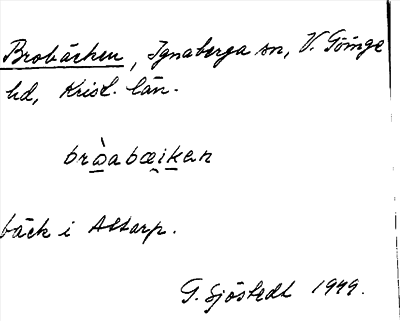 Brobäcken, Ignaberga sn, V. Göinge
hd, Krist. län.
bròabæikan
bäck i Attarp.
G. Sjöstedt 1949.